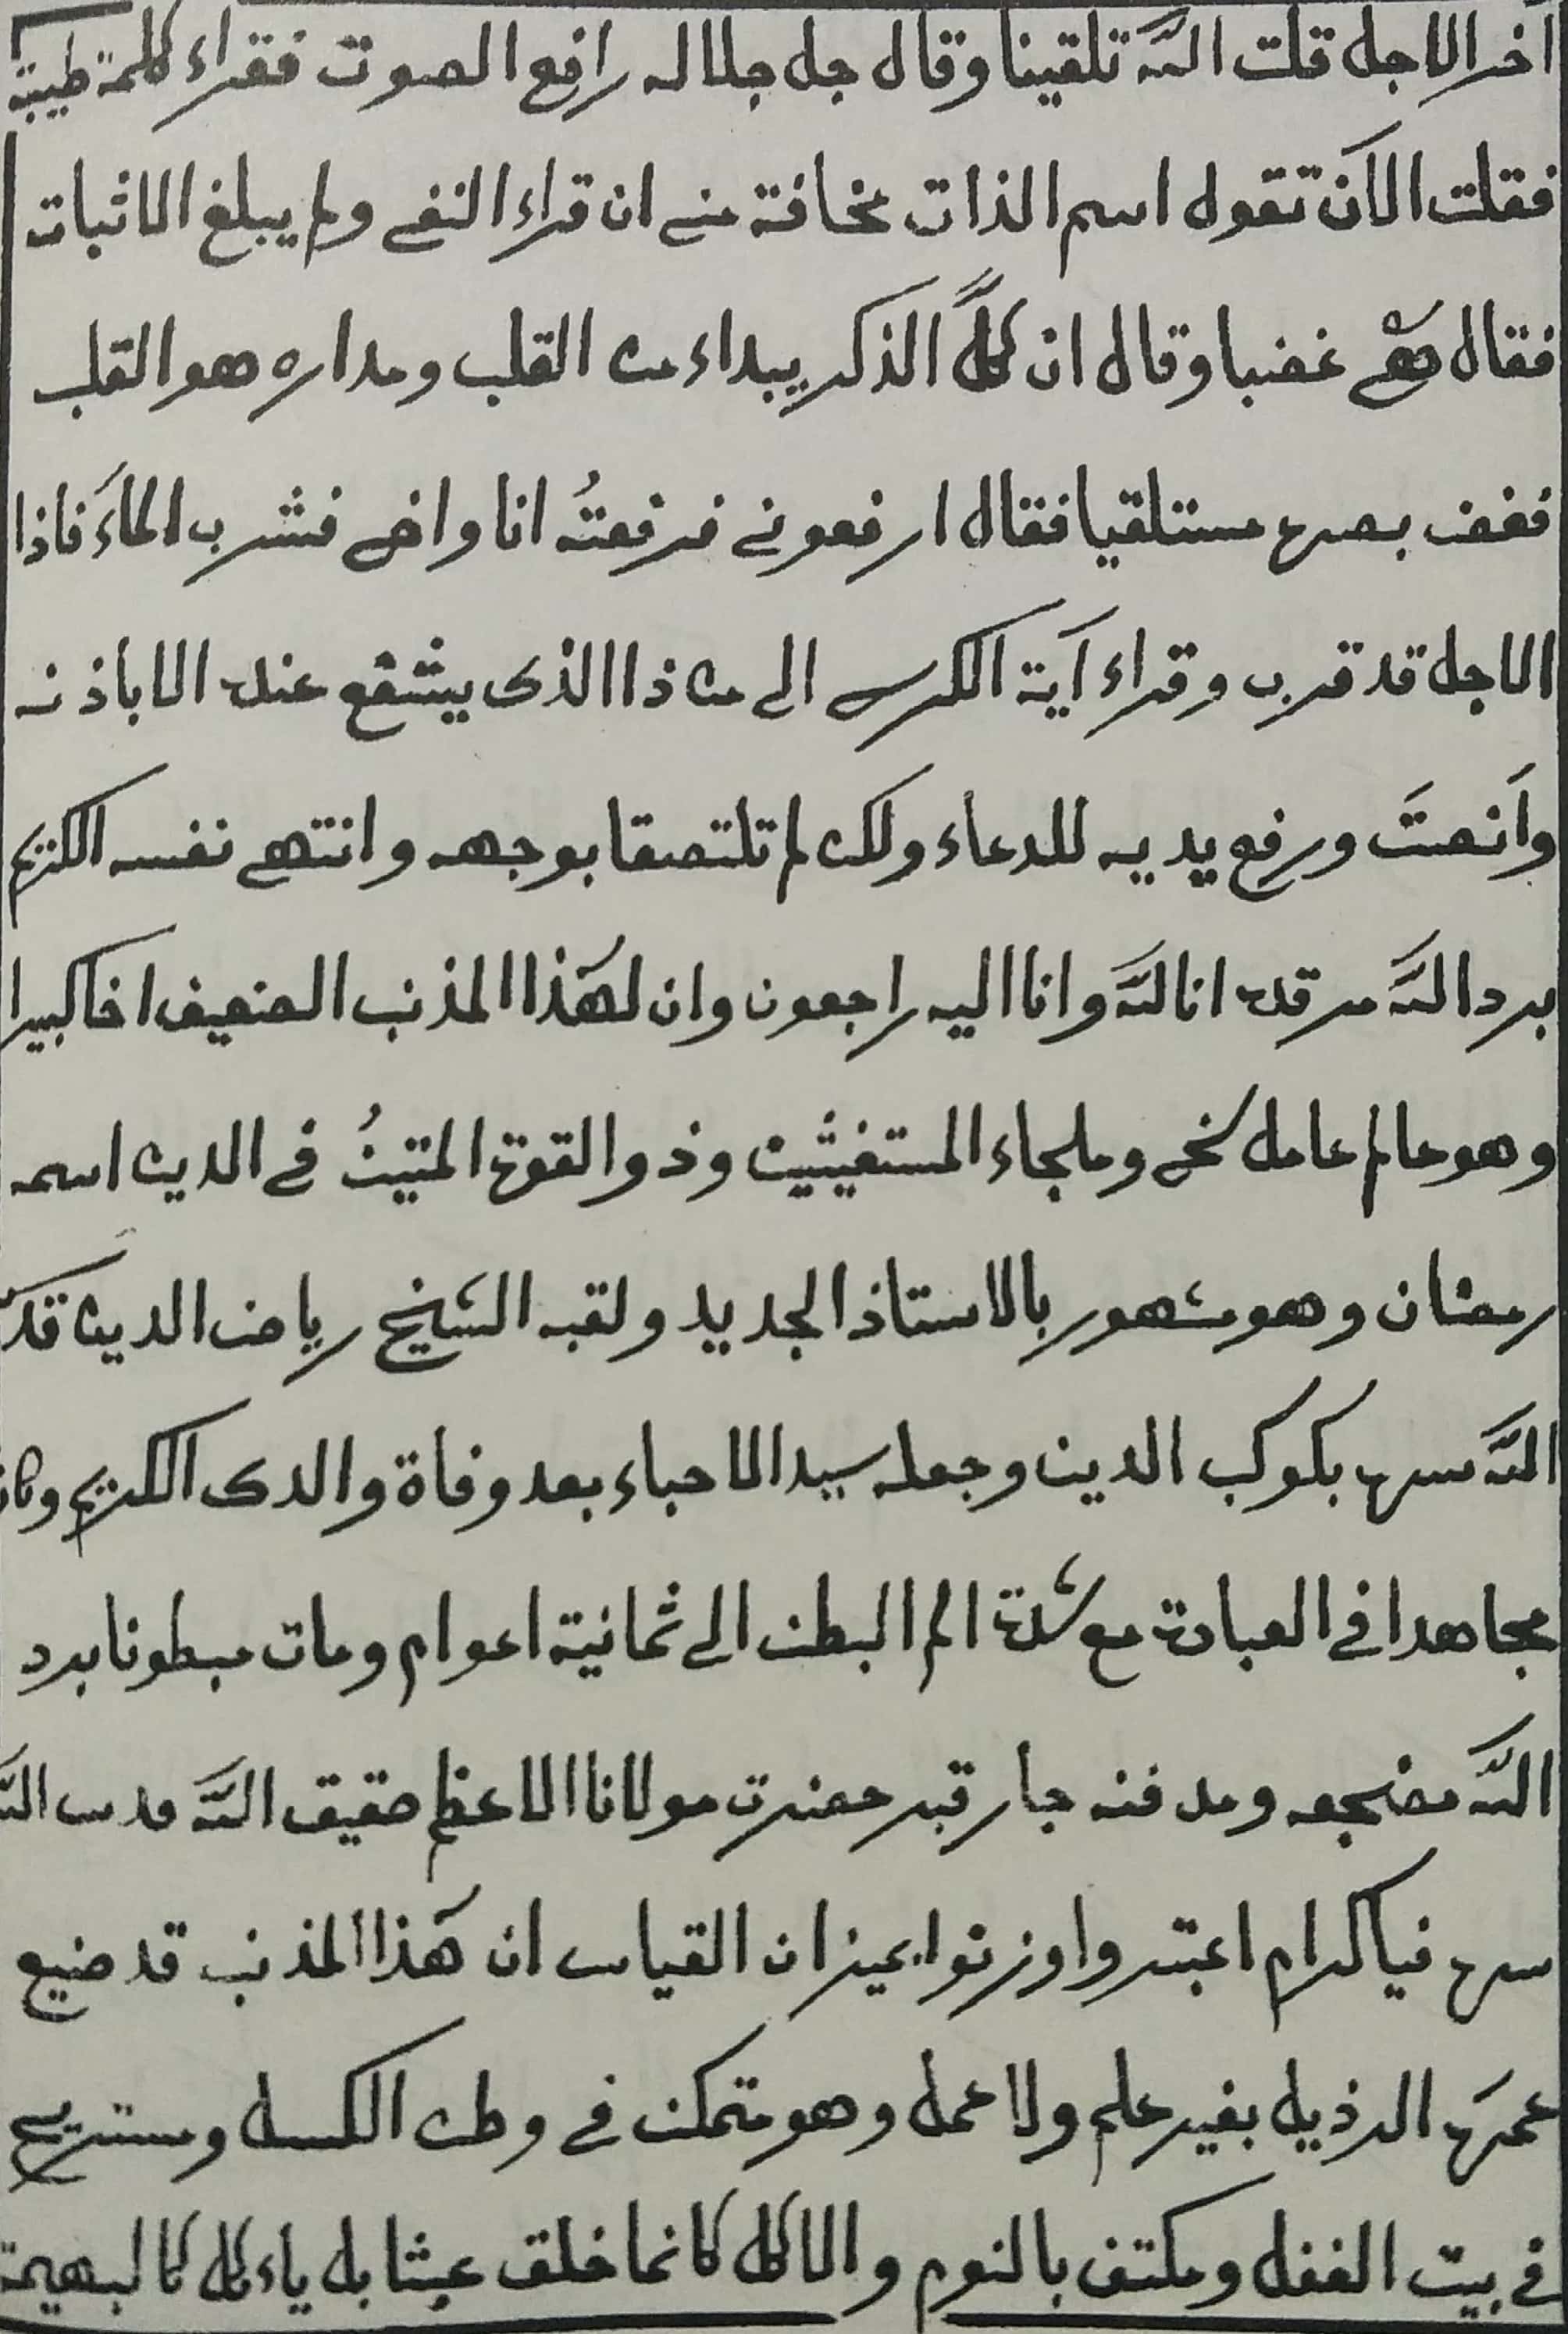 اخر الاجل قلت اللّه تلقينا وقال جل جلاله رافع الصوت فقراء كلمة طيبة
فقلت الآن تقول اسم الذات مخافة منى ان قراء النفى ولم يبلغ الاثبات
فقال غضبا وقال ان كلَّ الذكر يبداء من القلب ومداره هو القلب
فغض بصره مستلقيا فقال ارفعونى فرفعتُه انا واخى فشرب الماءَ فاذا
الاجل قد قرب وقراء آية الكرسى الى من ذا الذى يشفع عنده الا باذنه
وآنصتَ ورفع يديه للدعاء ولكن لم تلتصقا بوجهه وانتهى نفسه الكريم
برد اللّه مرقده انا للّه وانا اليه راجعون وان لهٰذا المذنب الضعيف اخا كبيرا
وهو عالم عامل سخى وملجاء المستغيثين وذو القوة المتينُ فى الدين اسمه
رمضان وهو مشهور بالاستاذ الجديد ولقبه الشيخ رياض الدين قدّ
اللّه سره بكوكب الدين وجعله سيد الاحباء بعد وفاة والدى الكريم وكان
مجاهدا فى العبادة مع شدة الم البطن الى ثمانية اعوام ومات مبطونا برد
اللّه مضجعه ومدفنه جار قبر حضرت مولانا الاعظم حقيق اللّه قدس اللّه
سره فيا كرام اعتبروا وزنوا بميزان القياس ان هٰذا المذنب قد ضيع
عمرَه الرذيل بغير علم ولا عمل وهو متمكن فى وطن الكسل ومستريح
فى بيت الغفل ومكتف بالنوم والاكل كانما خلق عبثا بل ياءكل كالبهيمة